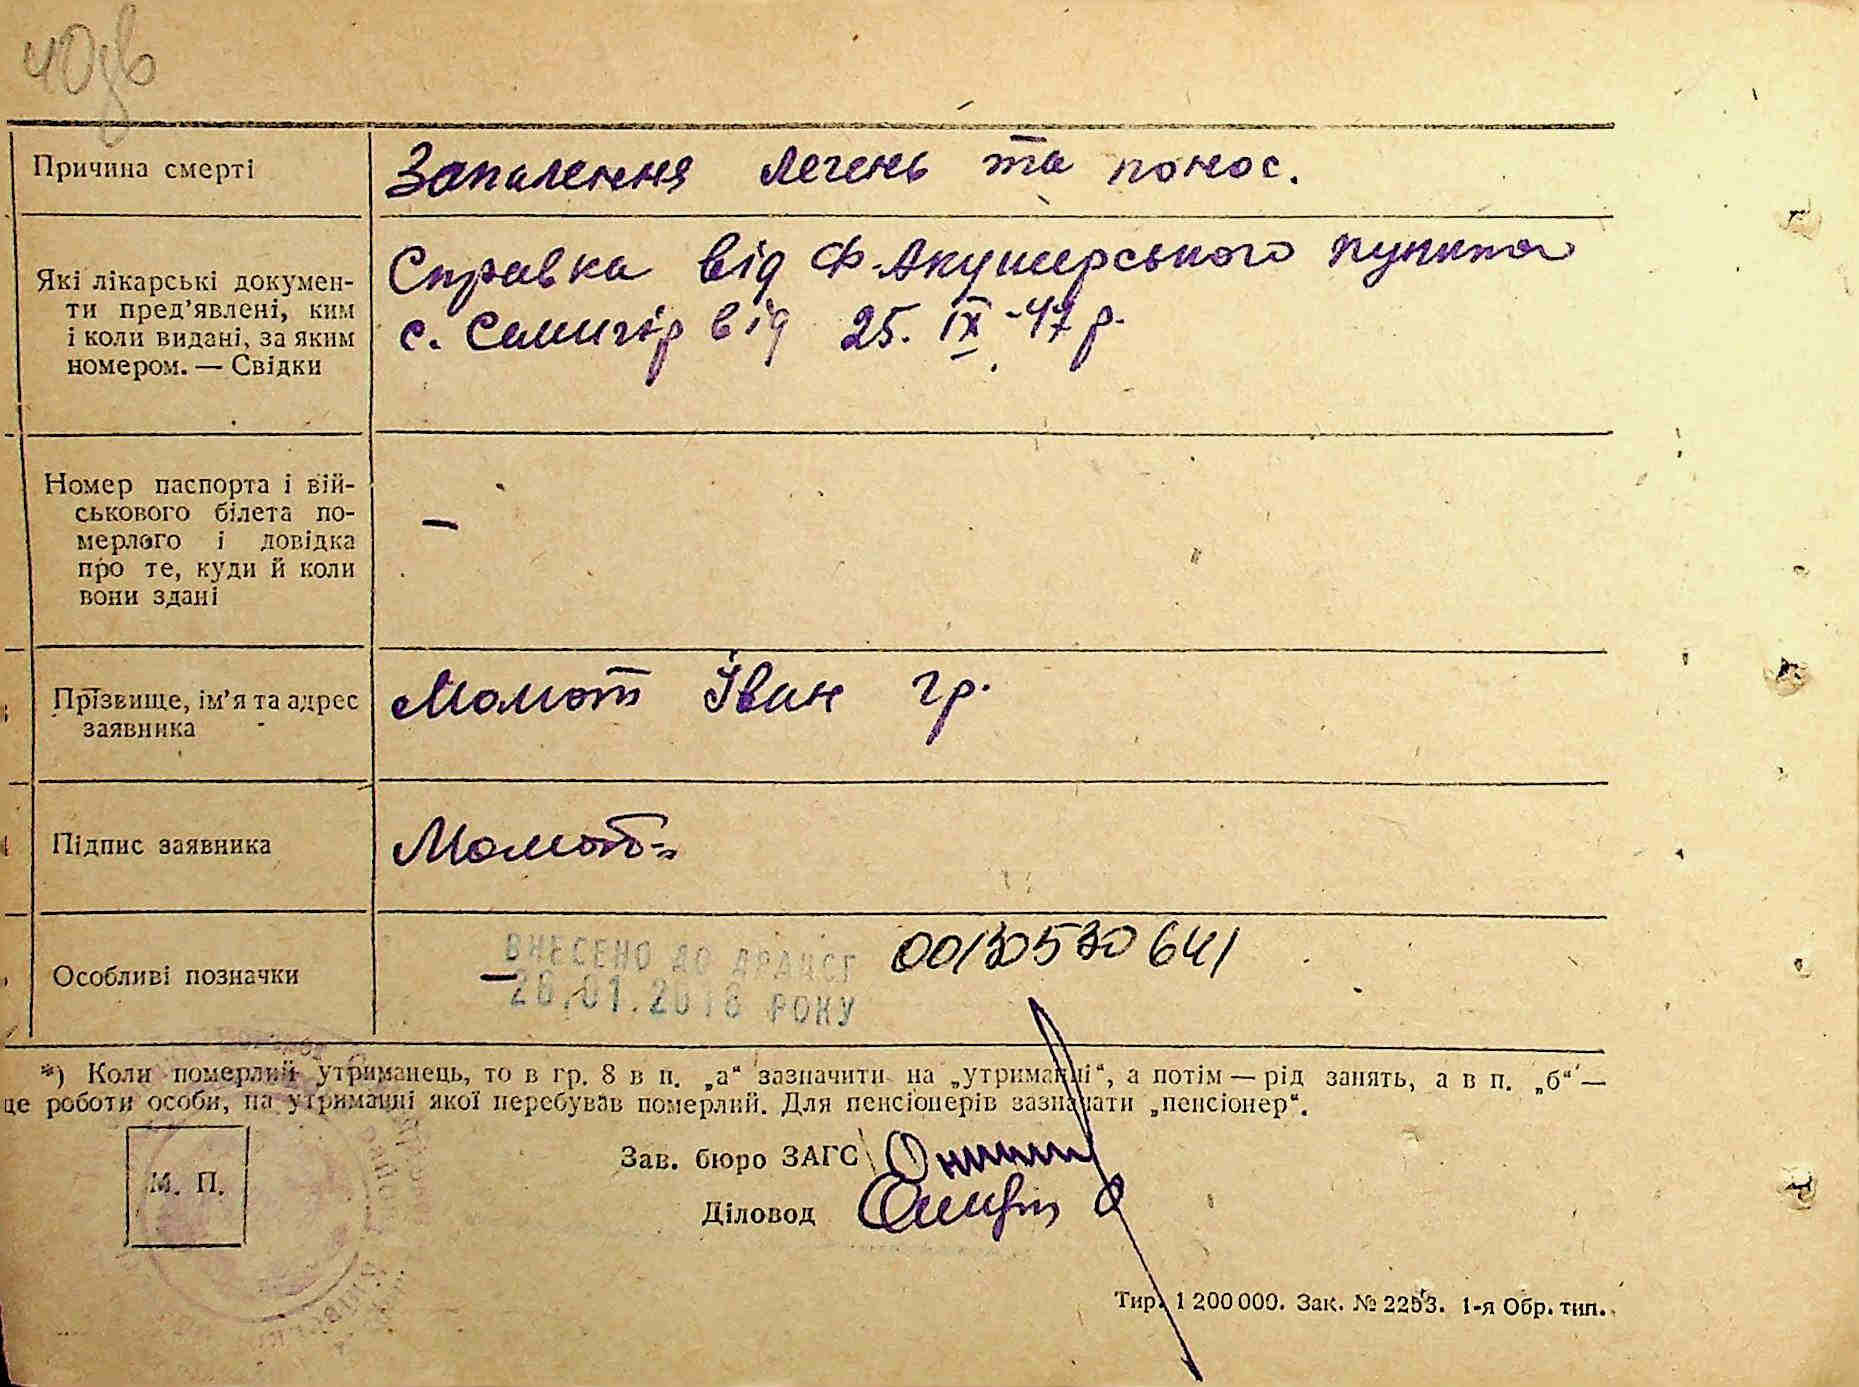 40зв
Причина смерті
Запалення легень та понос.
Які лікарські докумен-
ти пред’явлені, ким
і коли видані, за яким
номером. — Свідки
Справка від Ф-Акушерського пункта
с. Семигір від 25. IX -47 р.
Номер паспорта і вій-
ськового білета по-
мерлого і довідка
про те, куди й коли
вони здані
—
Прізвище, ім’я та адрес
заявника
Момот Іван Гр.
Підпис заявника
Момот
Особливі позначки
—
ВНЕСЕНО ДО ДРАЦСГ
26.01.2018 РОКУ
00130530641
*) Коли померлий утриманець, то в гр. 8 в п. „а“ зазначити на „утриманні“, а потім — рід занять, а в п. „б“ —
це роботи особи, на утриманні якої перебував померлий. Для пенсіонерів зазначати „пенсіонер“.
М. П.
Зав. бюро ЗАГС
Діловод
Тир. 1 200 000. Зак. № 2253. 1-я Обр. тип.